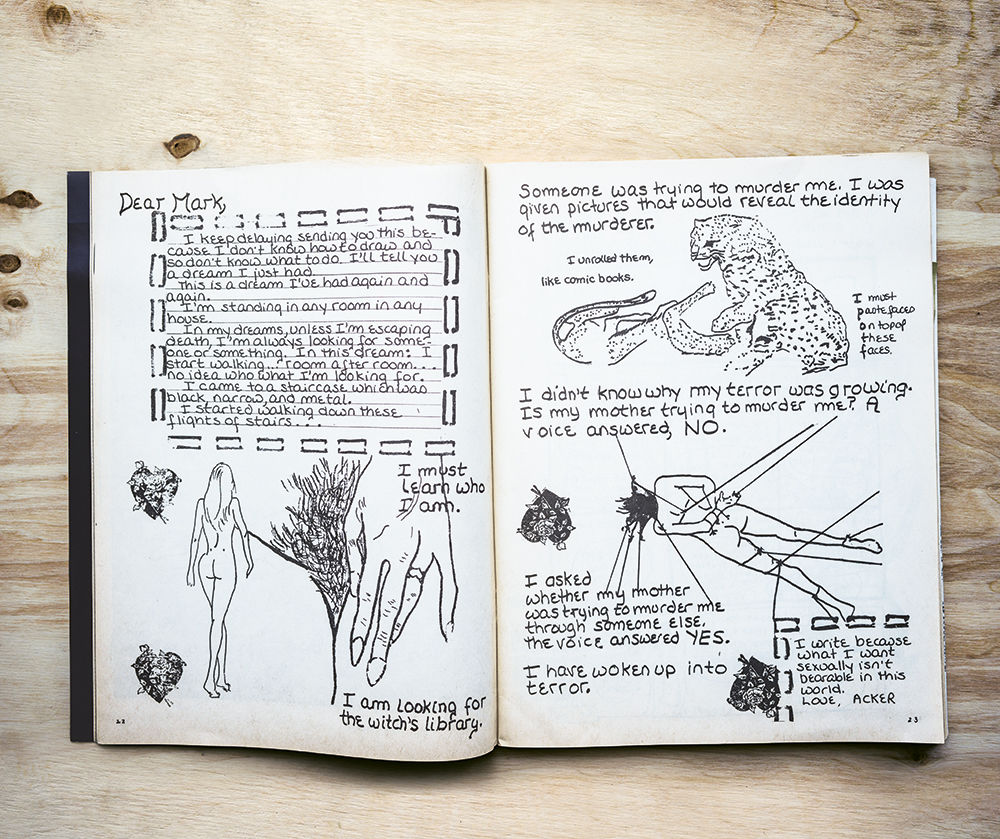 Dear Mark,
I keep delaying sending you this be-
cause I don't know how to draw and
so don't know what to do. I'll tell you
a dream I just had.
This is a dream I've had again and
again.
I'm standing in any room in any
house.
In my dreams, unless I'm escaping
death, I'm always looking for some-
one or something. In this dream: I
start walking... room after room...
no idea who what I'm looking for.
I came to a staircase which was
black, narrow, and metal.
I started walking down these
flights of stairs...
I must
learn who
I am.
I am looking for
the witch's library.
22
Someone was trying to murder me. I was
given pictures that would reveal the identity
of the murderer.
I unrolled them,
like comic books.
I must
paste faces
on top of
these
faces.
I didn't know why my terror was growing.
Is my mother trying to murder me? A
voice answered, NO.
I asked
whether my mother
was trying to murder me
through someone else.
the voice answered YES.
I have woken up into
terror.
I write because
what I want
sexually isn't
bearable in this
world.
LOVE, ACKER
23